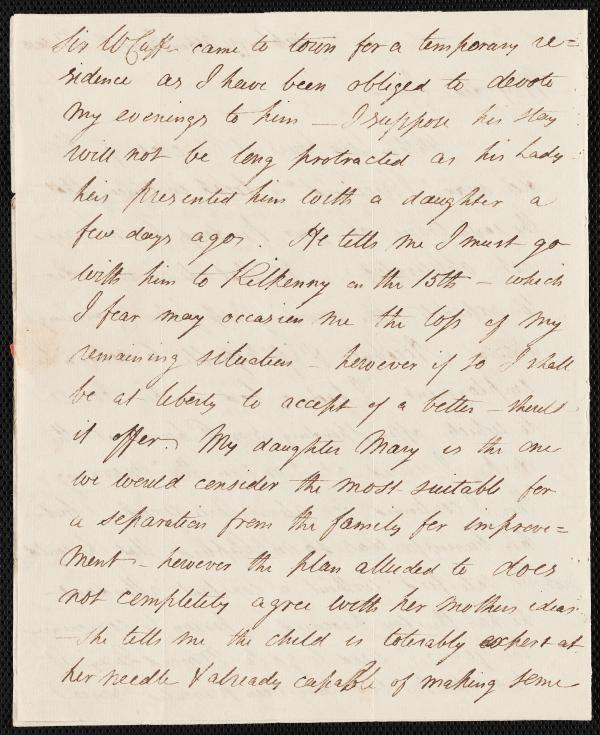 Sir W Cuffe came to town for a temporary re=
sidence as I have been obliged to devote
my evenings to him — I suppose his stay
will not be long protracted as his Lady
has presented him with a daughter a
few days ago. He tells me I must go
with him to Kilkenny on the 15th – which
I fear may occasion me the loss of my
remaining situation – however if so I shall
be at liberty to accept of a better – should
it offer. My daughter Mary is the one
we would consider the most suitable for
a separation from the family for improve=
ment – however the plan alluded to does
not completely agree with her mothers ideas
– She tells me the child is tolerably expert at
her needle & already capable of making some